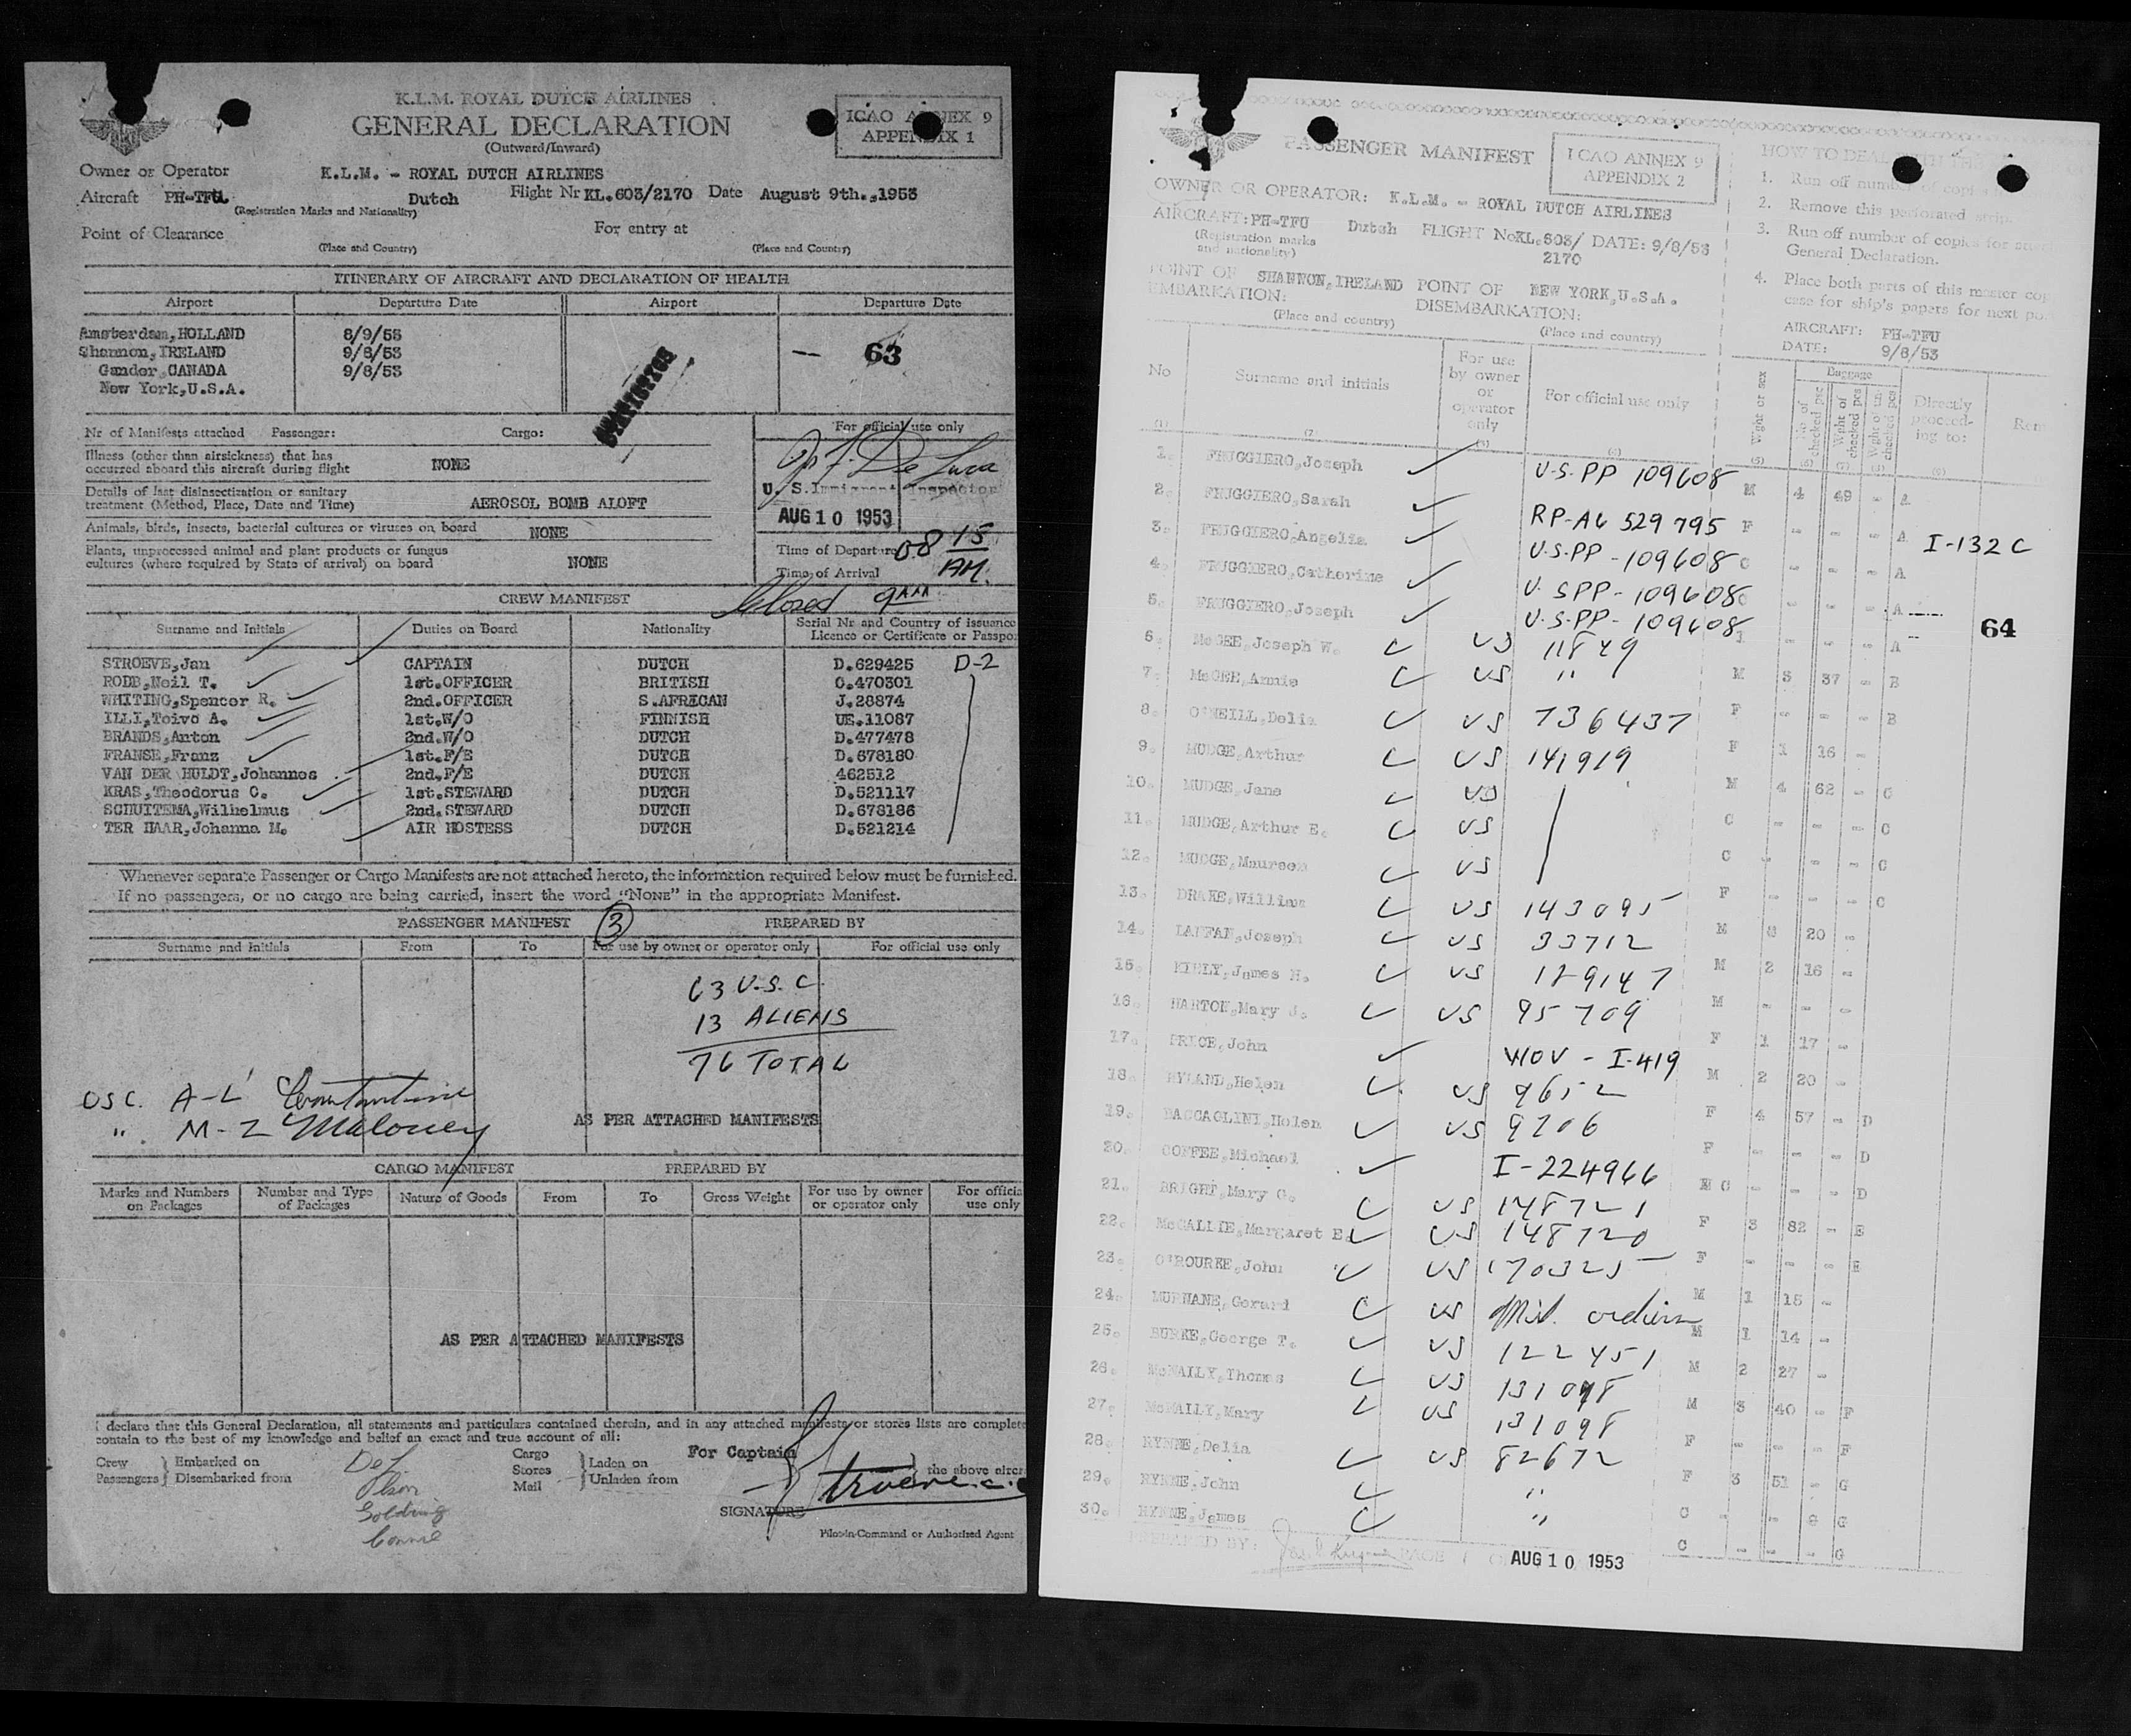 K.L.M. ROYAL DUTCH AIRLINES
GENERAL DECLARATION
(Outward/Inward)
ICAO ANNEX 9
APPENDIX 1
Owner or Operator K.L.M. - ROYAL DUTCH AIRLINES
Aircraft PH-TFU Dutch Flight Nr KL.603/2170 Date August 9th.,1953
(Registration Marks and Nationality)
Point of Clearance For entry at
(Place and Country) (Place and Country)
ITINERARY OF AIRCRAFT AND DECLARATION OF HEALTH
Airport Departure Date Airport Departure Date
Amsterdam,HOLLAND 8/9/53
Shannon,IRELAND 9/8/53 — 63
Gander CANADA 9/8/53
New York,U.S.A.
Nr of Manifests attached Passenger: Cargo: For official use only
Illness (other than airsickness) that has
occurred aboard this aircraft during flight NONE
Details of last disinsectization or sanitary
treatment (Method, Place, Date and Time) AEROSOL BOMB ALOFT
U. S. Immigrant Inspector
AUG 10 1953
Animals, birds, insects, bacterial cultures or viruses on board NONE
Plants, unprocessed animal and plant products or fungus
cultures (where required by State of arrival) on board NONE
Time of Departure 08 15
Time of Arrival AM.
Closed 9AM
CREW MANIFEST
Surname and Initials Duties on Board Nationality Serial Nr and Country of issuance
Licence or Certificate or Passpo
STROEVE,Jan CAPTAIN DUTCH D.629425 D-2
RODD,Neil T. 1st.OFFICER BRITISH C.470301
WHITING,Spencer R. 2nd.OFFICER S.AFRICAN J.28874
ILLI,Toivo A. 1st.W/O FINNISH UE.11087
BRANDS,Anton 2nd.W/O DUTCH D.477478
FRANSE,Franz 1st.F/E DUTCH D.678180
VAN DER HULDT,Johannes 2nd.F/E DUTCH 462512
KRAS,Theodorus C. 1st.STEWARD DUTCH D.521117
SCHUITEMA,Wilhelmus 2nd.STEWARD DUTCH D.678186
TER HAAR,Johanna M. AIR HOSTESS DUTCH D.521214
Whenever separate Passenger or Cargo Manifests are not attached hereto, the information required below must be furnished.
If no passengers, or no cargo are being carried, insert the word "NONE" in the appropriate Manifest.
PASSENGER MANIFEST 3 PREPARED BY
Surname and Initials From To For use by owner or operator only For official use only
63 U.S.C.
13 ALIENS
76 TOTAL
USC. A-L Constantine
" M-Z Maloney
AS PER ATTACHED MANIFESTS
CARGO MANIFEST PREPARED BY
Marks and Numbers on Packages Number and Type of Packages Nature of Goods From To Gross Weight For use by owner or operator only For officia use only
AS PER ATTACHED MANIFESTS
I declare that this General Declaration, all statements and particulars contained therein, and in any attached manifests or stores lists are complete
contain to the best of my knowledge and belief an exact and true account of all:
Crew Passengers } Embarked on Disembarked from
Cargo Stores Mail } Laden on Unladen from
For Captain
the above aircr
SIGNATURE Stroeve
Pilot-in-Command or Authorised Agent
PASSENGER MANIFEST
ICAO ANNEX 9
APPENDIX 2
OWNER OR OPERATOR: K.L.M. - ROYAL DUTCH AIRLINES
AIRCRAFT: PH-TFU Dutch FLIGHT No KL.603/2170 DATE: 9/8/53
(Registration marks and nationality)
POINT OF EMBARKATION: SHANNON,IRELAND POINT OF DISEMBARKATION: NEW YORK,U.S.A.
(Place and country) (Place and country)
HOW TO DEAL
1. Run off number of copi
2. Remove this perforated strip.
3. Run off number of copies for
General Declaration.
4. Place both parts of this master cop
case for ship's papers for next po
AIRCRAFT: PH-TFU
DATE: 9/8/53
No Surname and initials For use by owner or operator only For official use only Wight or sex Baggage No of checked pcs Wght of checked pcs Wght of un checked pcs Directly proceeding to: Rem
1. FRUGGIERO,Joseph U.S.PP 109608 M 4 49 - A
2. FRUGGIERO,Sarah RP-A6 529795 F - - - A I-132C
3. FRUGGIERO,Angelia U.S.PP-109608 C - - - A
4. FRUGGIERO,Catherine U.SPP-109608 C - - - A
5. FRUGGIERO,Joseph U.S.PP-109608 I - - - A 64
6. McGEE,Joseph W. US 11849 M 3 37 - B
7. McGEE,Annie US " F - - - B
8. O'NEILL,Delia US 736437 F 1 16 -
9. MUDGE,Arthur US 141919 M 4 62 - C
10. MUDGE,Jane US C - - - C
11. MUDGE,Arthur E. US C - - - C
12. MUDGE,Maureen US F - - - C
13. DRAKE,William US 143095 M 3 20 -
14. LANFAN,Joseph US 33712 M 2 16 -
15. KIELY,James H. US 129147 M - - -
16. HARTON,Mary J. US 95709 F 1 17 -
17. PRICE,John WOV - I-419 M 2 20 -
18. RYLAND,Helen US 9652 F 4 57 - D
19. BACCAOLINI,Helen US 9206 F - - - D
20. COFFEE,Michael I-224966 M C - - - D
21. BRIGHT,Mary G. US 148721 F 3 82 - E
22. McCALLIE,Margaret E. US 148720 F - - - E
23. O'ROURKE,John US 170325 M 1 15 -
24. MURNANE,Gerard US Mil. orders M 1 14 -
25. BURKE,George T. US 122451 M 2 27 -
26. McNALLY,Thomas US 131098 M 3 40 - F
27. McNALLY,Mary US 131098 F - - - F
28. RYNNE,Delia US 82672 F 3 51 - G
29. RYNNE,John " C - - - G
30. RYNNE,James " C - - - G
PREPARED BY: PAGE 1 O AUG 10 1953